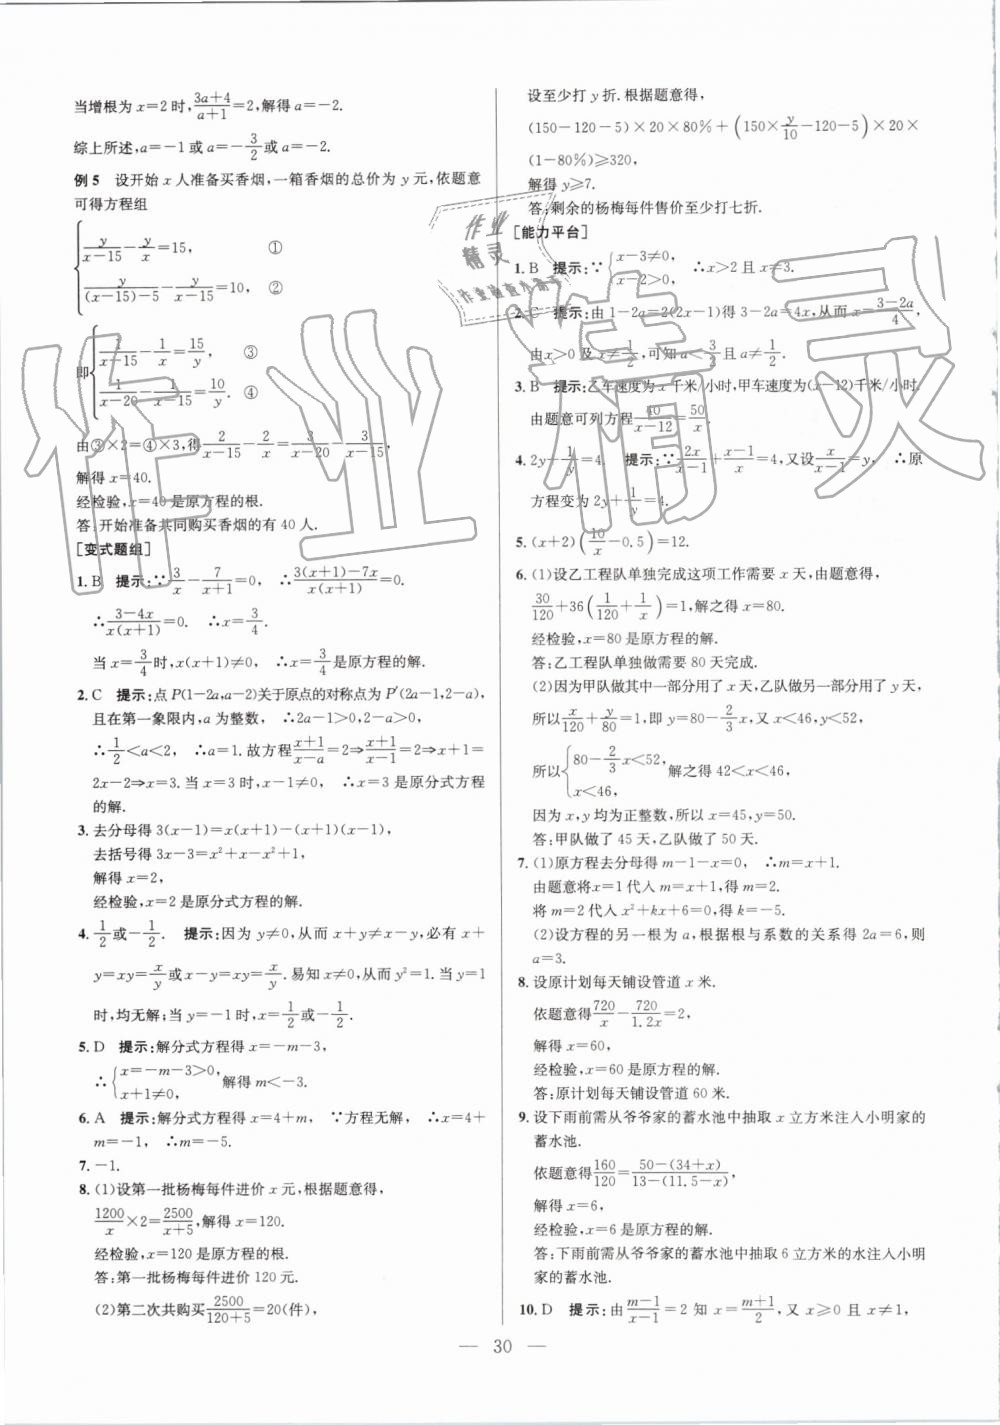 当增根为 x=2 时,(3a+4)/(a+1)=2,解得 a=−2.
综上所述,a=−1 或 a=−3/2 或 a=−2.
例 5 设开始 x 人准备买香烟,一箱香烟的总价为 y 元,依题意
可得方程组
{ y/(x−15)−y/x=15, ①
y/((x−15)−5)−y/(x−15)=10, ②
即{ 1/(x−15)−1/x=15/y, ③
1/(x−20)−1/(x−15)=10/y. ④
由③×2=④×3,得2/(x−15)−2/x=3/(x−20)−3/(x−15),
解得 x=40.
经检验,x=40 是原方程的根.
答:开始准备共同购买香烟的有 40 人.
[变式题组]
1. B 提示:∵3/x−7/(x+1)=0, ∴(3(x+1)−7x)/(x(x+1))=0.
∴(3−4x)/(x(x+1))=0. ∴x=3/4.
当 x=3/4时,x(x+1)≠0, ∴x=3/4是原方程的解.
2. C 提示:点 P(1−2a,a−2)关于原点的对称点为 P′(2a−1,2−a),
且在第一象限内,a 为整数, ∴2a−1>0,2−a>0,
∴1/2<a<2, ∴a=1. 故方程(x+1)/(x−a)=2⇒(x+1)/(x−1)=2⇒x+1=
2x−2⇒x=3. 当 x=3 时,x−1≠0, ∴x=3 是原分式方程
的解.
3. 去分母得 3(x−1)=x(x+1)−(x+1)(x−1),
去括号得 3x−3=x²+x−x²+1,
解得 x=2,
经检验,x=2 是原分式方程的解.
4. 1/2或−1/2. 提示:因为 y≠0,从而 x+y≠x−y,必有 x+
y=xy=x/y或 x−y=xy=x/y. 易知 x≠0,从而 y²=1. 当 y=1
时,均无解;当 y=−1 时,x=1/2或−1/2.
5. D 提示:解分式方程得 x=−m−3,
∴{x=−m−3>0,
x+1≠0, 解得 m<−3.
6. A 提示:解分式方程得 x=4+m, ∵方程无解, ∴x=4+
m=−1, ∴m=−5.
7. −1.
8. (1)设第一批杨梅每件进价 x 元,根据题意得,
1200/x×2=2500/(x+5),解得 x=120.
经检验,x=120 是原方程的根.
答:第一批杨梅每件进价 120 元.
(2)第二次共购买2500/(120+5)=20(件),
设至少打 y 折. 根据题意得,
(150−120−5)×20×80%+(150×y/10−120−5)×20×
(1−80%)≥320,
解得 y≥7.
答:剩余的杨梅每件售价至少打七折.
[能力平台]
1. B 提示:∵{x−3≠0,
x−2>0, ∴x>2 且 x≠3.
2. C 提示:由 1−2a=2(2x−1)得 3−2a=4x,从而 x=(3−2a)/4,
由 x>0 及 x≠1/2,可知 a<3/2且 a≠1/2.
3. B 提示:乙车速度为 x 千米/小时,甲车速度为(x−12)千米/小时.
由题意可列方程40/(x−12)=50/x.
4. 2y−1/y=4. 提示:∵2x/(x−1)+(x−1)/x=4,又设x/(x−1)=y, ∴原
方程变为 2y+1/y=4.
5. (x+2)(10/x−0.5)=12.
6. (1)设乙工程队单独完成这项工作需要 x 天,由题意得,
30/120+36(1/120+1/x)=1,解之得 x=80.
经检验,x=80 是原方程的解.
答:乙工程队单独做需要 80 天完成.
(2)因为甲队做其中一部分用了 x 天,乙队做另一部分用了 y 天,
所以x/120+y/80=1,即 y=80−2/3x,又 x<46,y<52,
所以{80−2/3x<52,
x<46, 解之得 42<x<46,
因为 x,y 均为正整数,所以 x=45,y=50.
答:甲队做了 45 天,乙队做了 50 天.
7. (1)原方程去分母得 m−1−x=0, ∴m=x+1.
由题意将x=1 代人 m=x+1,得 m=2.
将 m=2 代人 x²+kx+6=0,得 k=−5.
(2)设方程的另一根为 a,根据根与系数的关系得 2a=6,则
a=3.
8. 设原计划每天铺设管道 x 米.
依题意得720/x−720/1.2x=2,
解得 x=60,
经检验,x=60 是原方程的解.
答:原计划每天铺设管道 60 米.
9. 设下雨前需从爷爷家的蓄水池中抽取 x 立方米注人小明家的
蓄水池.
依题意得160/120=(50−(34+x))/(13−(11.5−x)),
解得 x=6,
经检验,x=6 是原方程的解.
答:下雨前需从爷爷家的蓄水池中抽取 6 立方米的水注人小明
家的蓄水池.
10. D 提示:由(m−1)/(x−1)=2 知 x=(m+1)/2,又 x≥0 且 x≠1,
— 30 —
作业精灵
作业
精灵